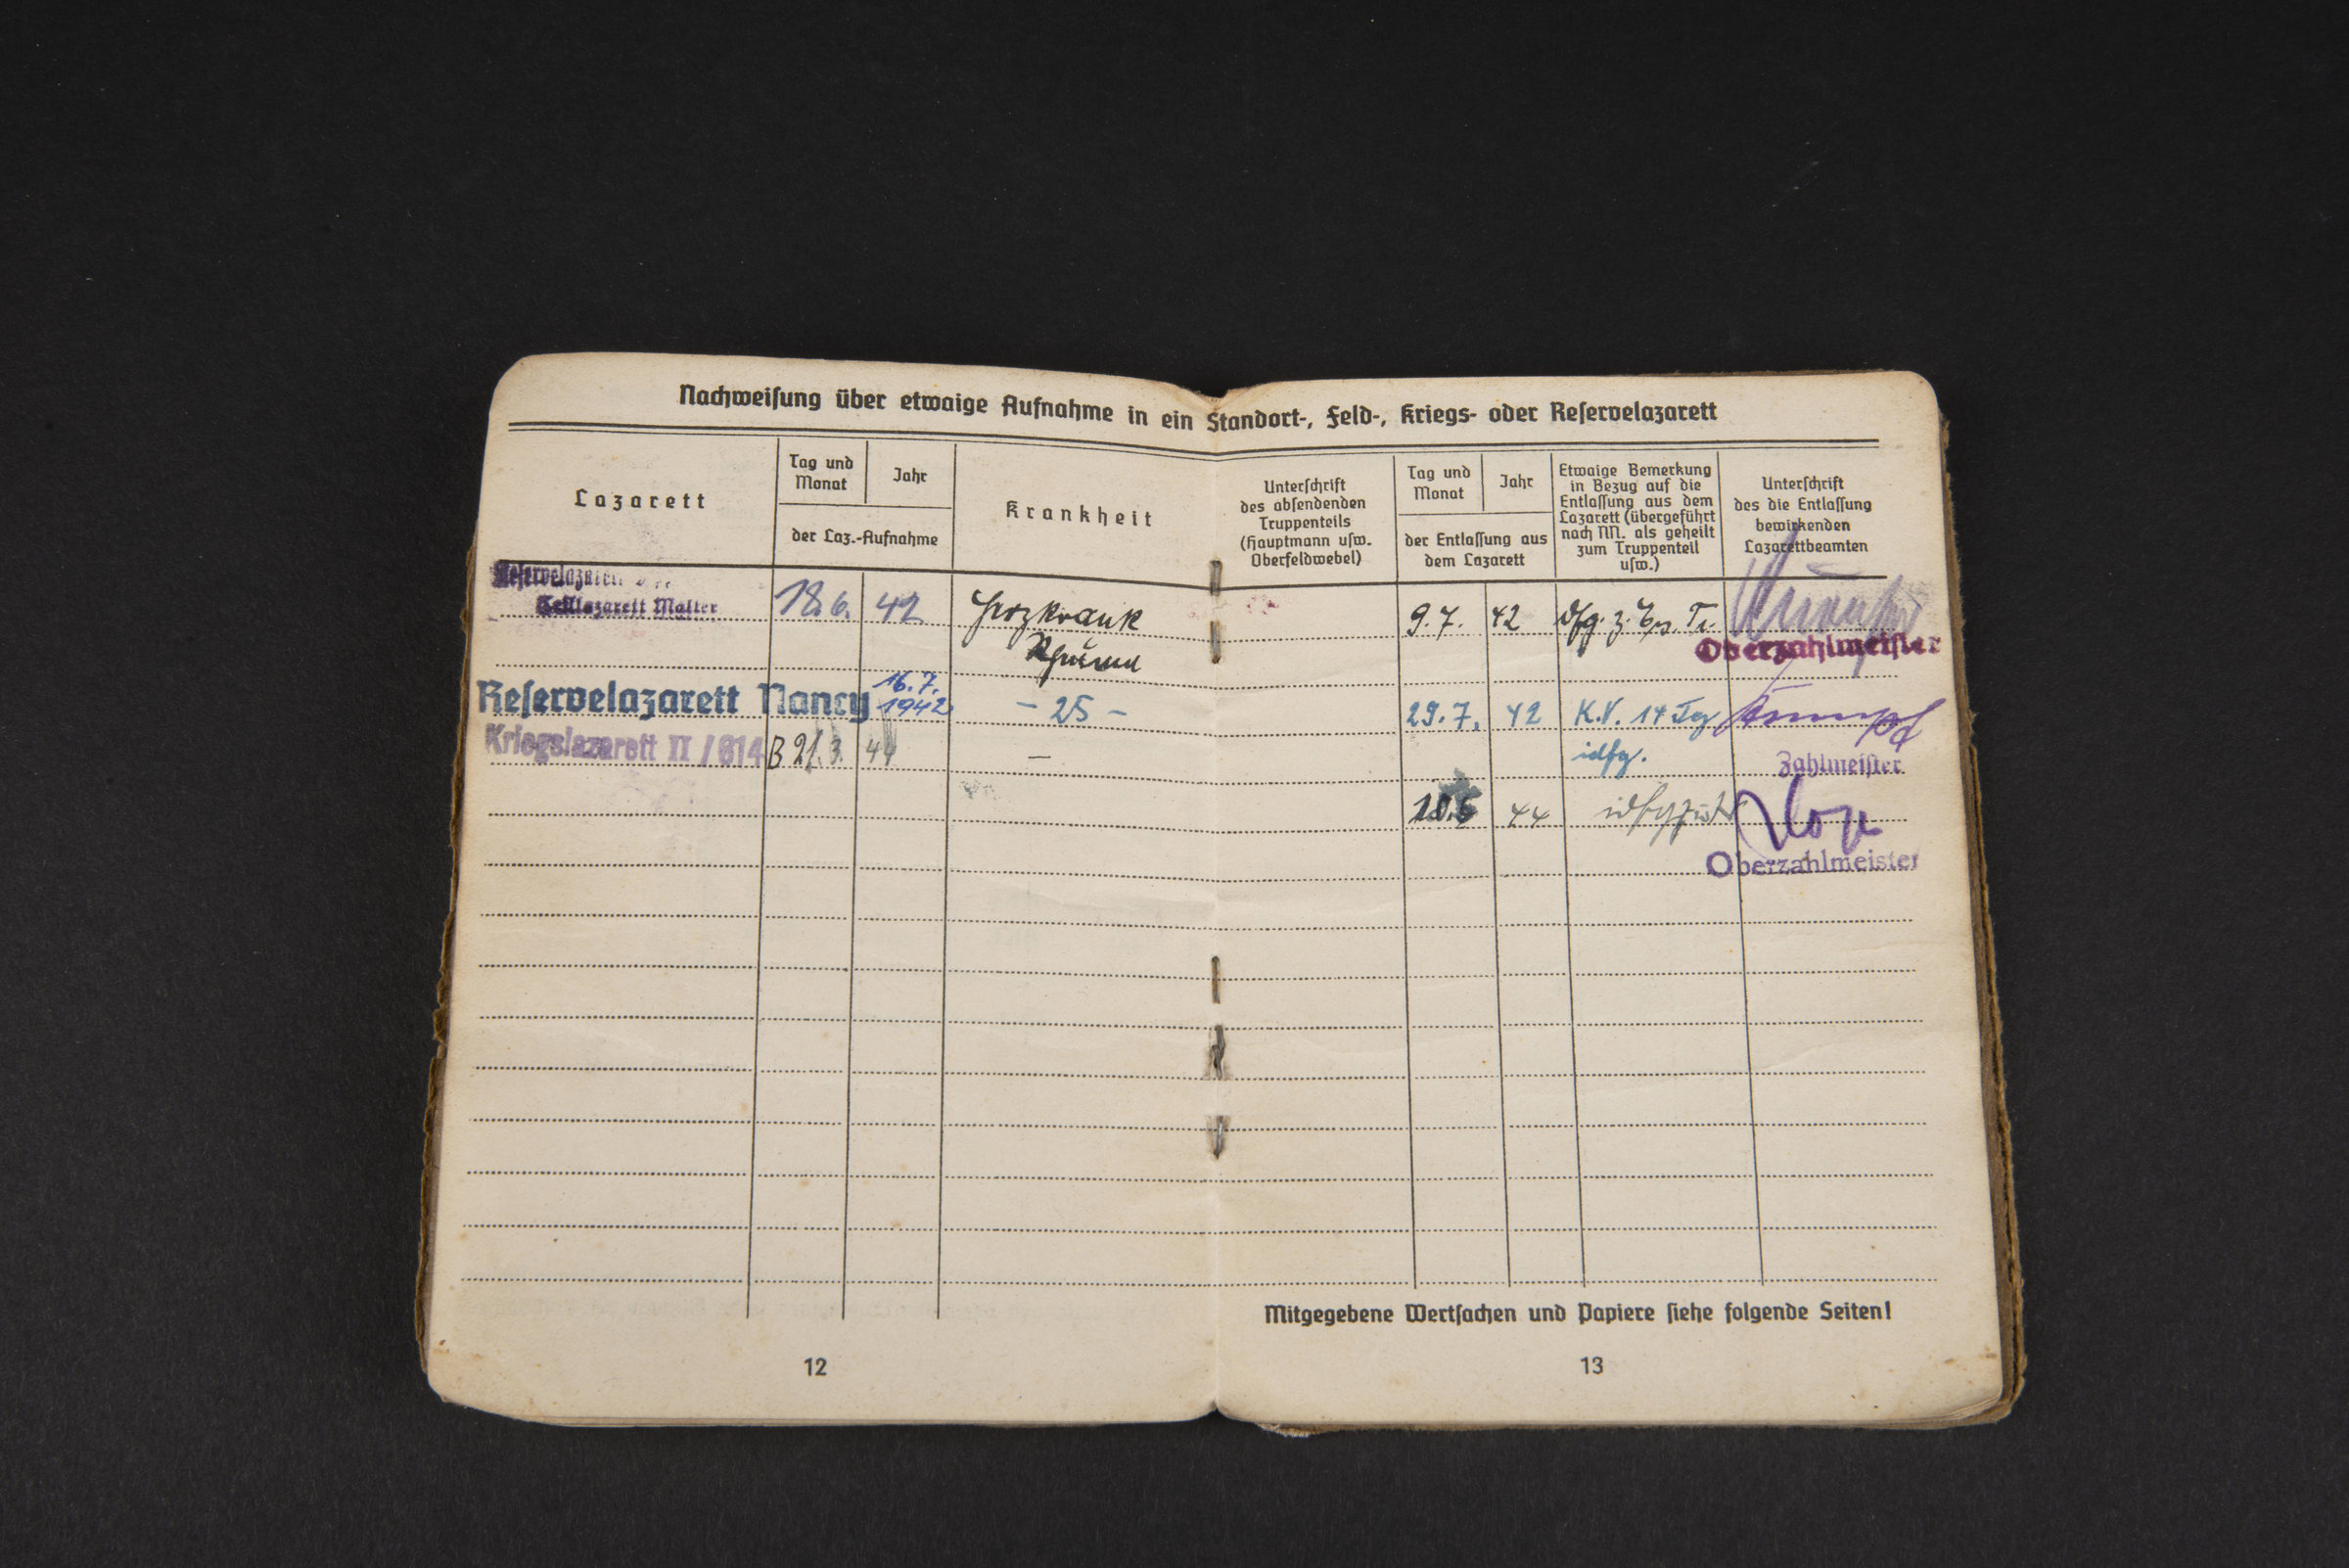 Nachweisung über etwaige Aufnahme in ein Standort-, Feld-, Kriegs- oder Reservelazarett
Lazarett
Tag und
Monat
Jahr
der Laz.-Aufnahme
Krankheit
Unterschrift
des absendenden
Truppenteils
(Hauptmann usw.
Oberfeldwebel)
Tag und
Monat
Jahr
der Entlassung aus
dem Lazarett
Etwaige Bemerkung
in Bezug auf die
Entlassung aus dem
Lazarett (übergeführt
nach NN. als geheilt
zum Truppenteil
usw.)
Unterschrift
des die Entlassung
bewirkenden
Lazarettbeamten
Reservelazarett
Teillazarett Malter 18.6. 42 Herzkrank 9.7. 42 dfg. z. Ers. Tr.
Oberzahlmeister
Reservelazarett Nancy 16.7. 1942 - 25 - 29.7. 42 K.V. 14 Tg
idfg.
Zahlmeister
Kriegslazarett II / 614 B 21.3. 44 —
10.5 44
Oberzahlmeister
Mitgegebene Wertsachen und Papiere siehe folgende Seiten!
12
13